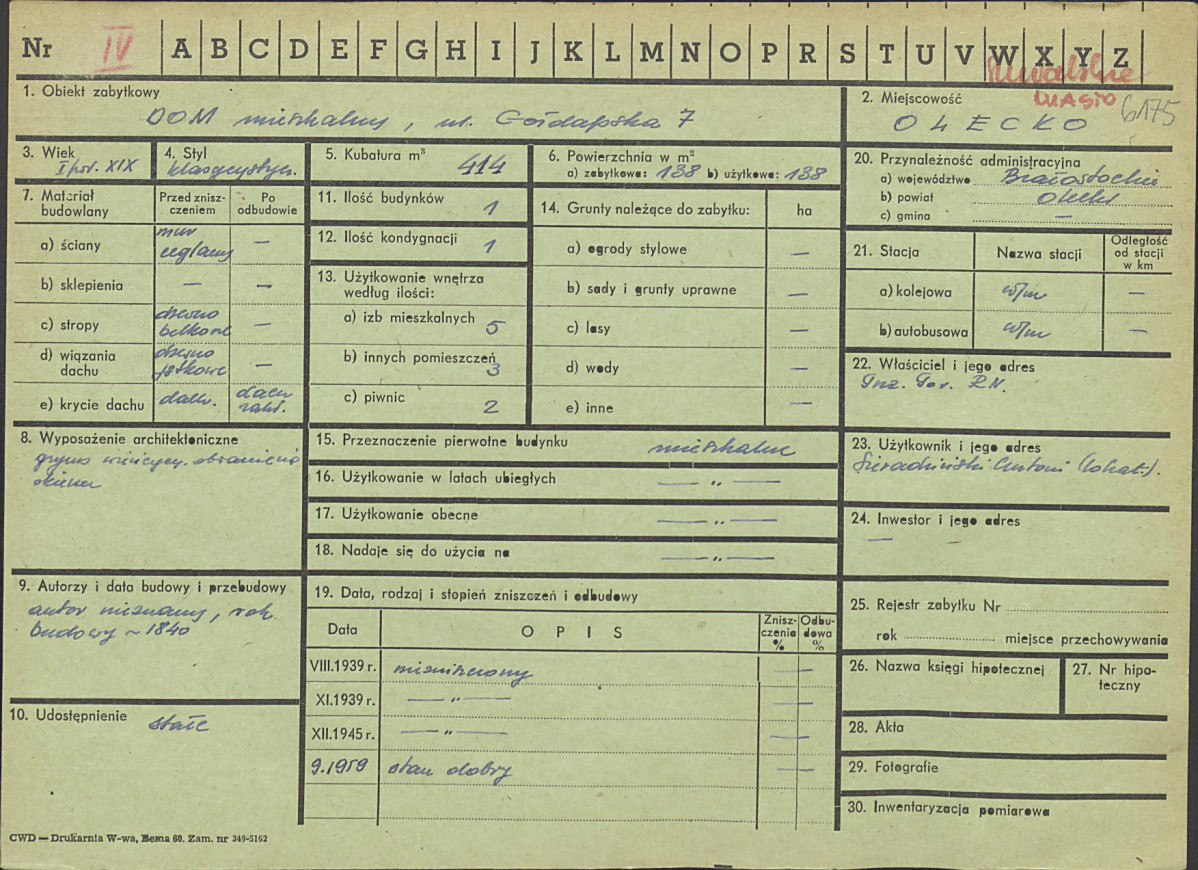 Nr IV A B C D E F G H I J K L M N O P R S T U V W X Y Z
Suwalskie
MIASTO 6175
1. Obiekt zabytkowy
DOM mieszkalny, ul. Gołdapska 7
2. Miejscowość
OLECKO
3. Wiek
I poł. XIX
4. Styl
klasycystycz.
5. Kubatura m³
414
6. Powierzchnia w m²
a) zabytkowa: 138 b) użytkowa: 138
7. Materiał budowlany
Przed zniszczeniem
Po odbudowie
a) ściany
mur ceglany —
b) sklepienia — —
c) stropy
drewno belkowe —
d) wiązania dachu
drewno jętkowe —
e) krycie dachu
dachówka
8. Wyposażenie architektoniczne
gzyms wieńcząc. obramienia
okienne
9. Autorzy i data budowy i przebudowy
autor nieznany, rok
budowy ~ 1840
10. Udostępnienie
stałe
11. Ilość budynków
1
12. Ilość kondygnacji
1
13. Użytkowanie wnętrza
według ilości:
a) izb mieszkalnych 5
b) innych pomieszczeń 3
c) piwnic 2
14. Grunty należące do zabytku: ha
a) ogrody stylowe —
b) sady i grunty uprawne —
c) lasy —
d) wody —
e) inne —
15. Przeznaczenie pierwotne budynku mieszkalne
16. Użytkowanie w latach ubiegłych — „ —
17. Użytkowanie obecne — „ —
18. Nadaje się do użycia na — „ —
19. Data, rodzaj i stopień zniszczeń i odbudowy
Data OPIS Zniszczenia % Odbudowa %
VIII.1939 r. niezniszczony —
XI.1939 r. — „ — —
XII.1945 r. — „ — —
9.1959 stan dobry —
20. Przynależność administracyjna
a) województwo Białostockie
b) powiat Olecki
c) gmina —
21. Stacja Nazwa stacji Odległość od stacji w km
a) kolejowa w/m —
b) autobusowa w/m —
22. Właściciel i jego adres
Prez. Pow. R.N.
23. Użytkownik i jego adres
Antoni (lokat.).
24. Inwestor i jego adres
—
25. Rejestr zabytku Nr
rok miejsce przechowywania
26. Nazwa księgi hipotecznej
27. Nr hipo-
teczny
28. Akta
29. Fotografie
30. Inwentaryzacja pomiarowa
CWD — Drukarnia W-wa, Bema 60. Zam. nr 349-5162